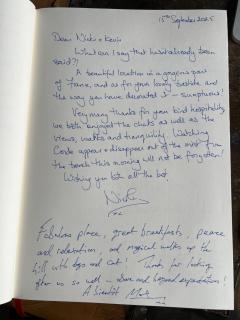 15th September 2025
Dear Nicki + Kevin
What can I say that hasn't already been
said?!
A beautiful location in a gorgeous part
of France, and as for your lovely bastide and
the way you have decorated it - sumptuous!
Very many thanks for your kind hospitality
we both enjoyed the chats as well as the
views, walks and tranquility. Watching
Cordes appear + disappear out of the mist from
the terrace this morning will not be forgotten!
Wishing you both all the best
Nicky
Fabulous place, great breakfasts, peace
and relaxation, and magical walks up the
hill with dogs and cat! Thanks for looking
after us so well - above and beyond expectations!
A bientôt